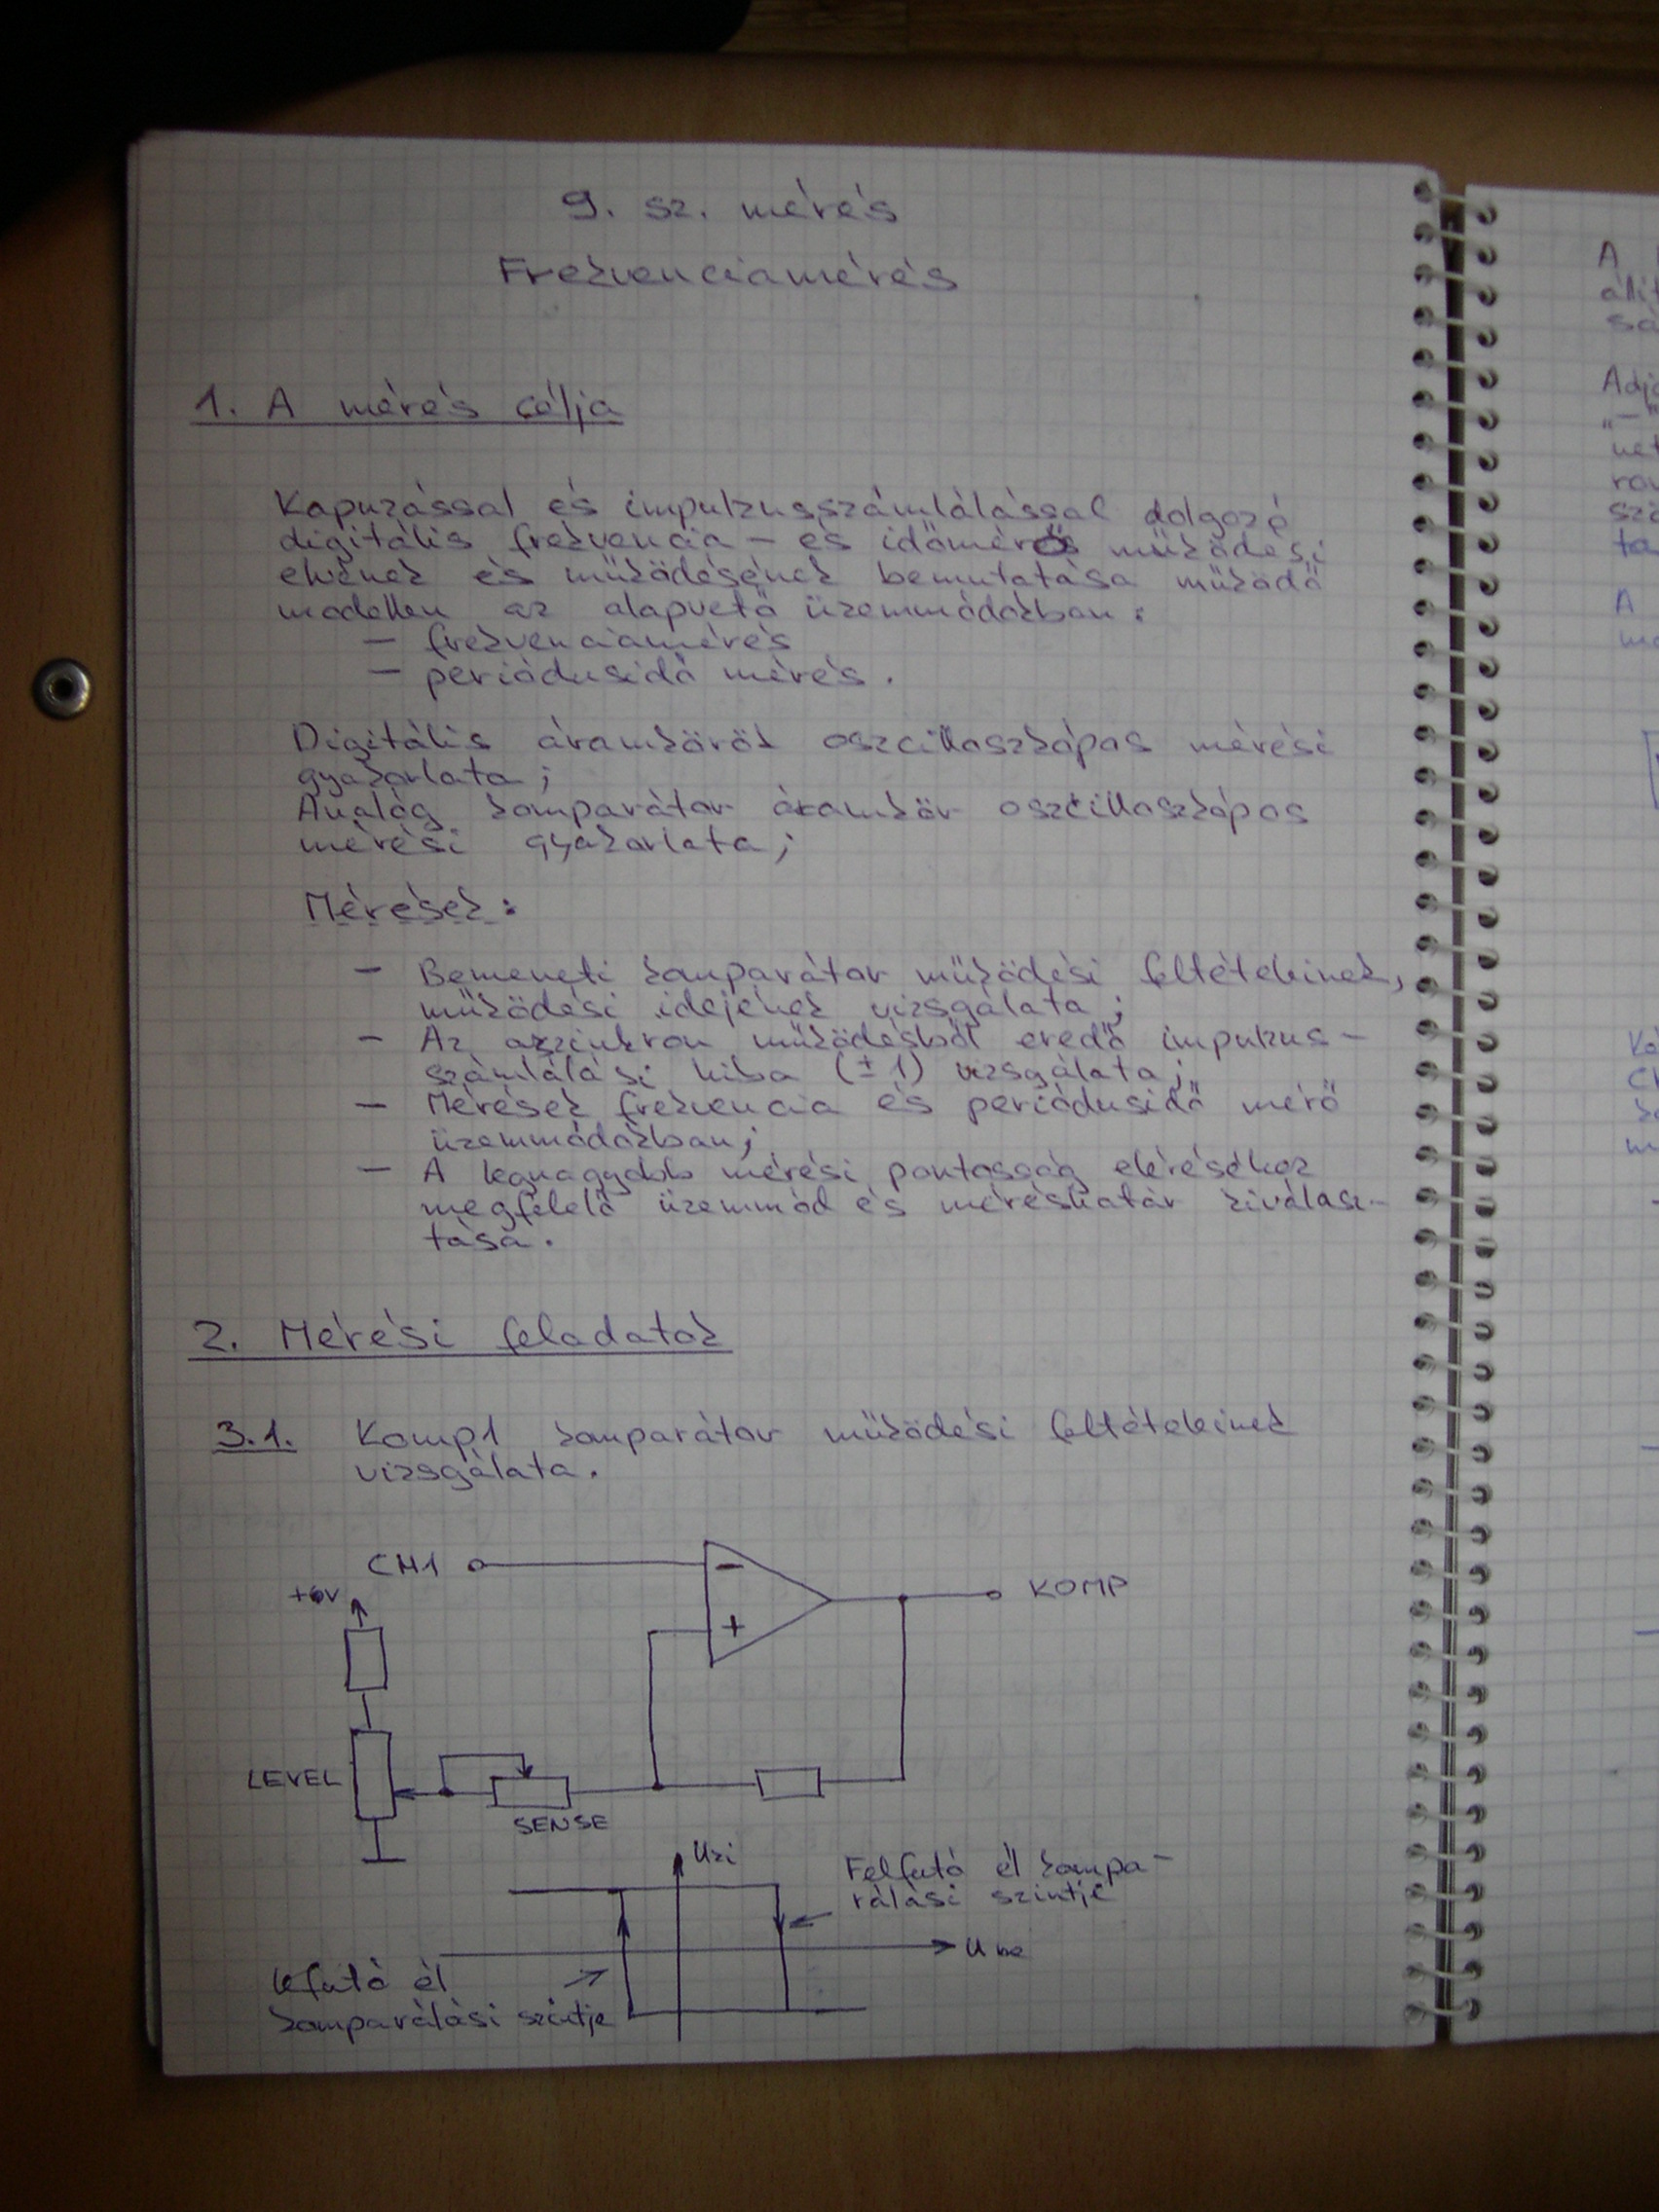 9. sz. mérés
Frekvenciamérés
1. A mérés célja
Kapuzással és impulzusszámlálással dolgozó
digitális frekvencia - és időmérés működési
elvének és működésének bemutatása működő
modellen az alapvető üzemmódokban:
- frekvenciamérés
- periódusidő mérés.
Digitális áramkörök oszcilloszkópos mérési
gyakorlata;
Analóg komparátor áramkör oszcilloszkópos
mérési gyakorlata;
Mérések:
- Bemeneti komparátor működési feltételeinek,
működési idejének vizsgálata;
- Az aszinkron működésből eredő impulzus-
számlálási hiba (±1) vizsgálata;
- Mérések frekvencia és periódusidő mérő
üzemmódokban;
- A legnagyobb mérési pontosság eléréséhez
megfelelő üzemmód és méréshatár kiválasz-
tása.
2. Mérési feladatok
3.1. Komp1 komparátor működési feltételeinek
vizsgálata.
CH1
-
+6V
KOMP
+
LEVEL
SENSE
Uki
Felfutó él kompa-
rálási szintje
Ube
lefutó él
komparálási szintje
A
Adj
A